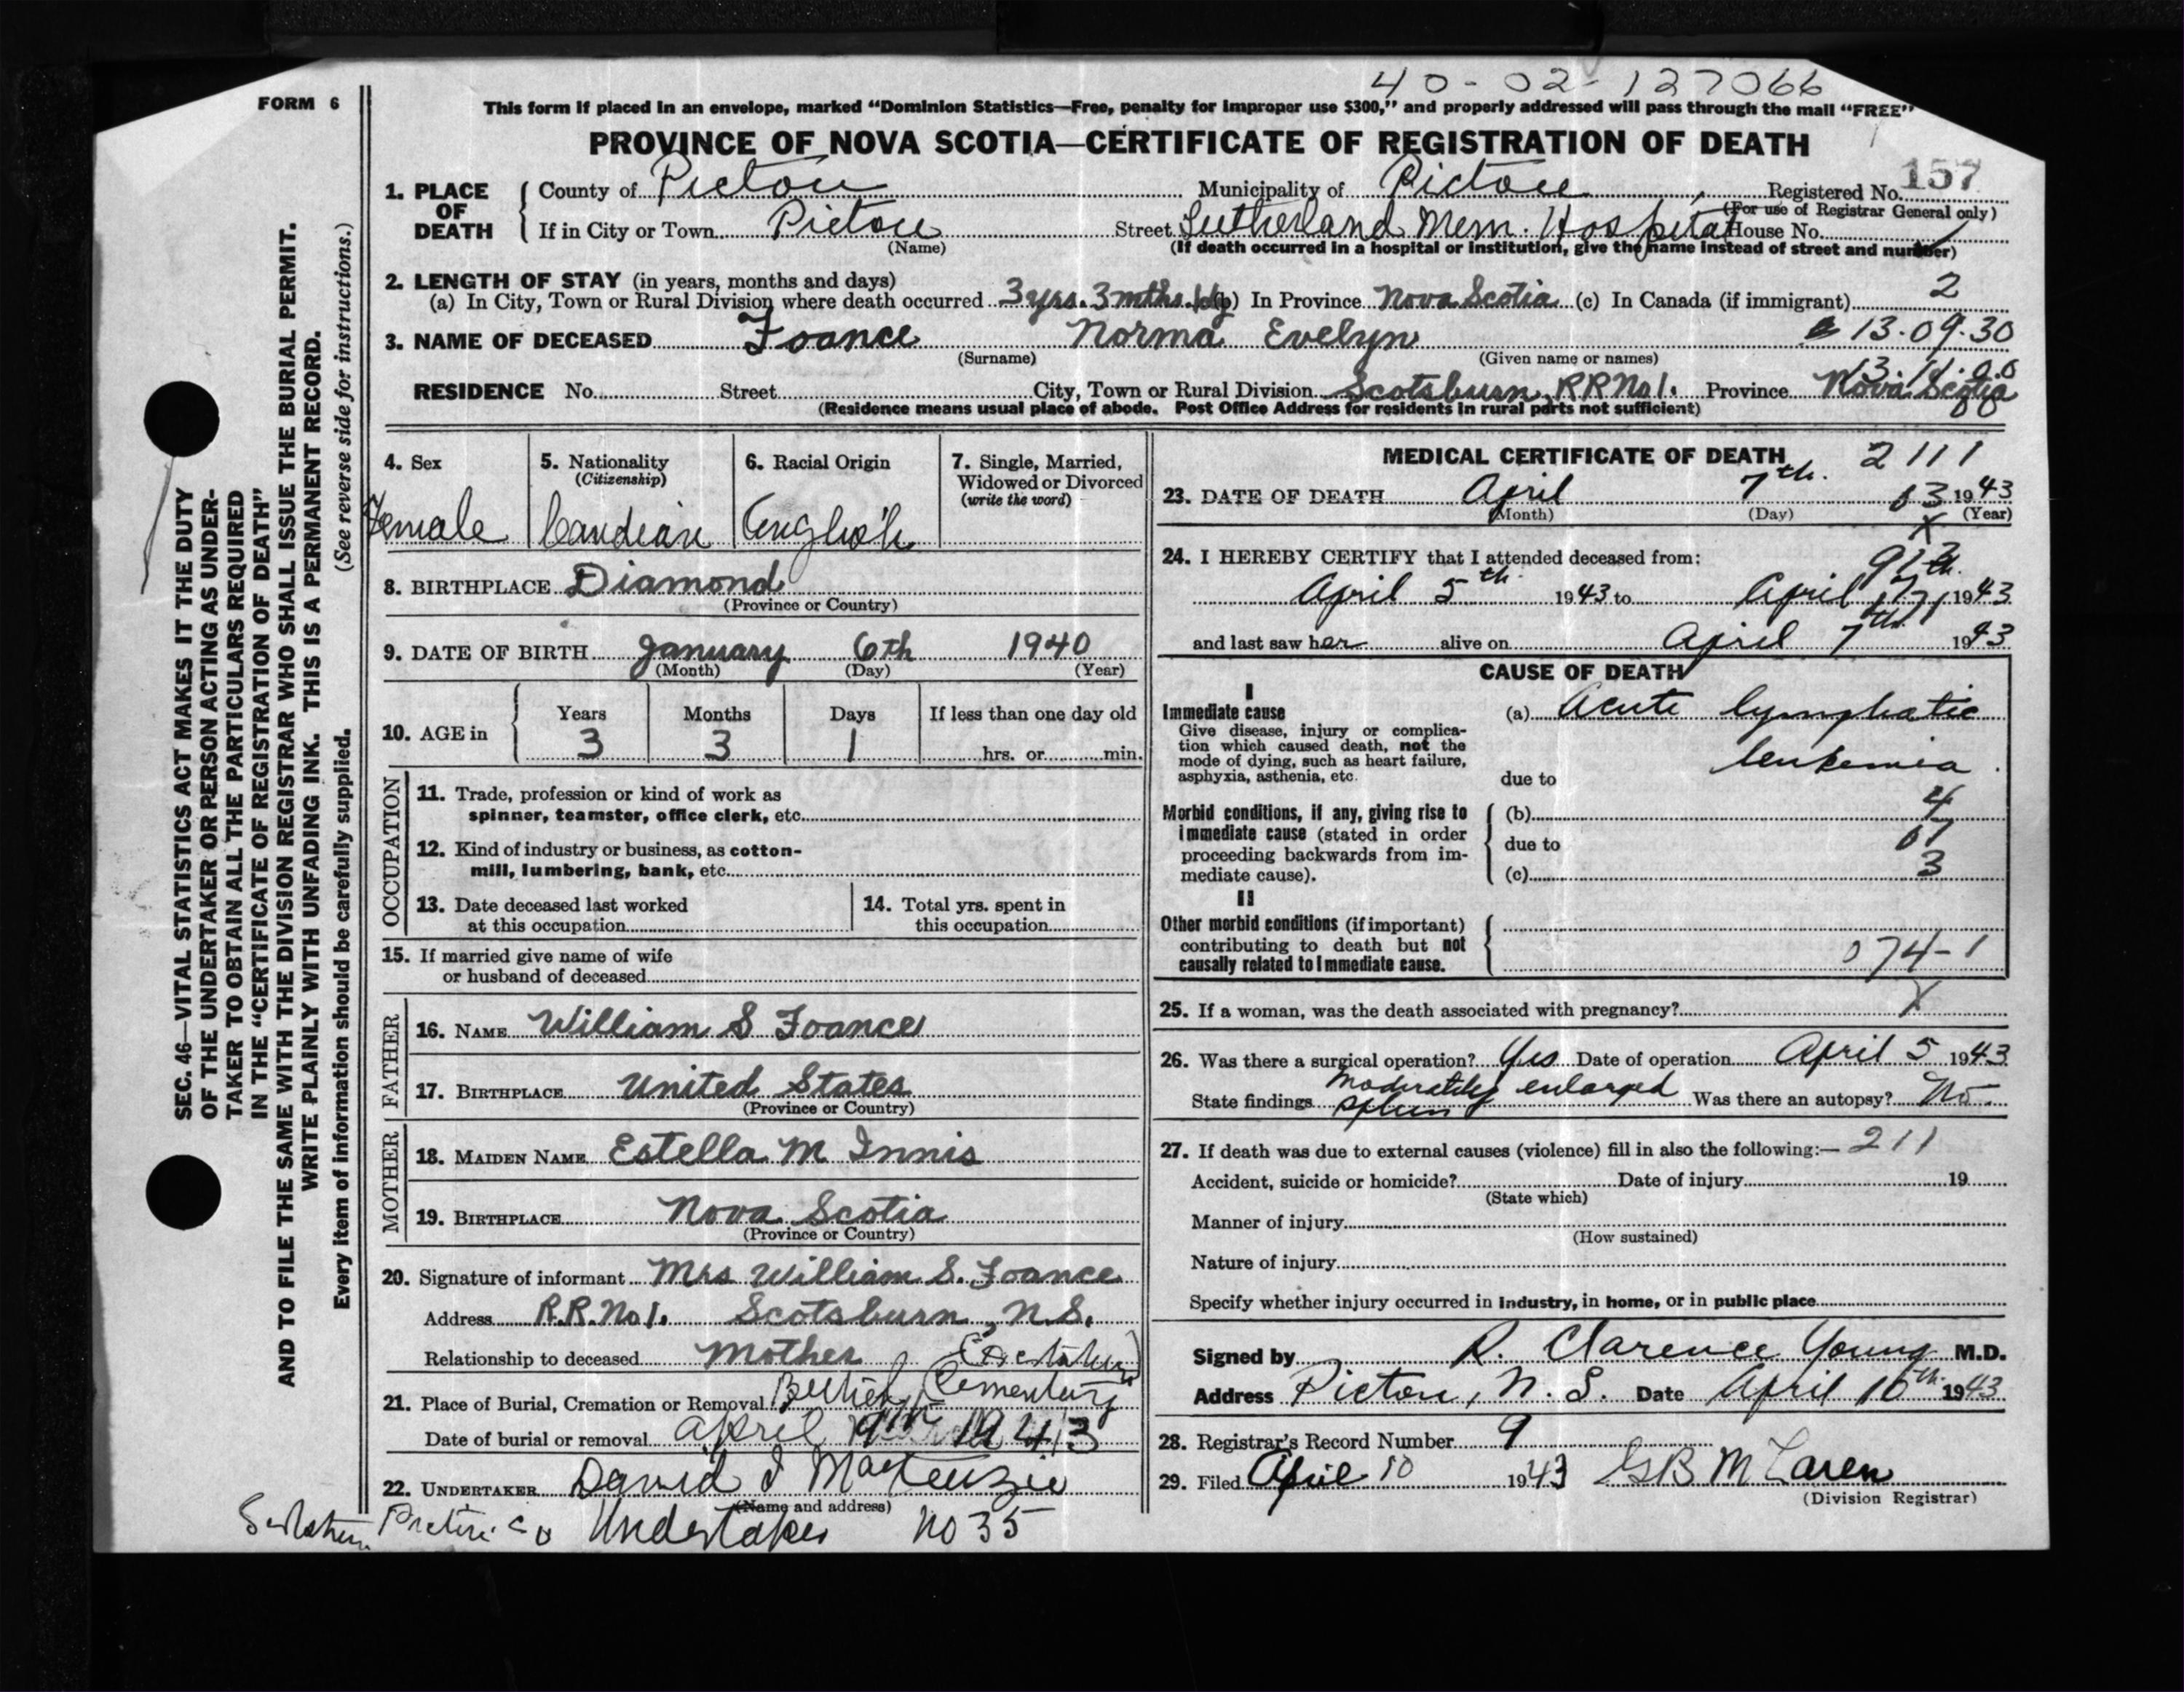 40-02-127066
FORM 6
This form if placed in an envelope, marked "Dominion Statistics—Free, penalty for improper use $300," and properly addressed will pass through the mail "FREE"
PROVINCE OF NOVA SCOTIA—CERTIFICATE OF REGISTRATION OF DEATH
157
1. PLACE OF DEATH
County of Pictou Municipality of Pictou Registered No.
(For use of Registrar General only)
If in City or Town Pictou Street Sutherland Mem. Hospital House No.
(Name) (If death occurred in a hospital or institution, give the name instead of street and number)
2. LENGTH OF STAY (in years, months and days)
(a) In City, Town or Rural Division where death occurred 3 yrs. 3 mths. 1 dy (b) In Province Nova Scotia (c) In Canada (if immigrant) 2
3. NAME OF DECEASED Foance Norma Evelyn 13.09.30
(Surname) (Given name or names)
RESIDENCE No. Street City, Town or Rural Division Scotsburn, RR No 1. Province Nova Scotia
(Residence means usual place of abode. Post Office Address for residents in rural parts not sufficient)
4. Sex Female
5. Nationality (Citizenship) Candian
6. Racial Origin English
7. Single, Married, Widowed or Divorced (write the word)
8. BIRTHPLACE Diamond
(Province or Country)
9. DATE OF BIRTH January 6th 1940
(Month) (Day) (Year)
10. AGE in Years 3 Months 3 Days 1 If less than one day old hrs. or min.
OCCUPATION
11. Trade, profession or kind of work as
spinner, teamster, office clerk, etc.
12. Kind of industry or business, as cotton-
mill, lumbering, bank, etc.
13. Date deceased last worked
at this occupation
14. Total yrs. spent in
this occupation
15. If married give name of wife
or husband of deceased
FATHER
16. NAME William S Foance
17. BIRTHPLACE United States
(Province or Country)
MOTHER
18. MAIDEN NAME Estella M Innis
19. BIRTHPLACE Nova Scotia
(Province or Country)
20. Signature of informant Mrs William S. Foance
Address R.R. No 1. Scotsburn, N.S.
Relationship to deceased Mother
21. Place of Burial, Cremation or Removal Cementery
Date of burial or removal April 9th 1943
22. UNDERTAKER David I MacKenzie
(Name and address)
Undertaker No 35
MEDICAL CERTIFICATE OF DEATH 2111
23. DATE OF DEATH April 7th. 1943
(Month) (Day) (Year)
24. I HEREBY CERTIFY that I attended deceased from:
April 5th 1943 to April 7th 1943
and last saw her alive on April 7th 1943
CAUSE OF DEATH
I
Immediate cause
Give disease, injury or complica-
tion which caused death, not the
mode of dying, such as heart failure,
asphyxia, asthenia, etc.
(a) Acute lymphatic
leukemia
due to
Morbid conditions, if any, giving rise to
immediate cause (stated in order
proceeding backwards from im-
mediate cause).
(b) 4
due to 07
(c) 3
II
Other morbid conditions (if important)
contributing to death but not
causally related to immediate cause.
074-1
25. If a woman, was the death associated with pregnancy? X
26. Was there a surgical operation? Yes Date of operation April 5 1943
State findings moderately enlarged spleen Was there an autopsy? No.
27. If death was due to external causes (violence) fill in also the following:— 211
Accident, suicide or homicide? Date of injury 19
(State which)
Manner of injury
(How sustained)
Nature of injury
Specify whether injury occurred in industry, in home, or in public place
Signed by R. Clarence Young M.D.
Address Pictou, N.S. Date April 10th 1943
28. Registrar's Record Number 9
29. Filed April 10 1943 G B McLaren
(Division Registrar)
SEC. 46—VITAL STATISTICS ACT MAKES IT THE DUTY
OF THE UNDERTAKER OR PERSON ACTING AS UNDER-
TAKER TO OBTAIN ALL THE PARTICULARS REQUIRED
IN THE "CERTIFICATE OF REGISTRATION OF DEATH"
AND TO FILE THE SAME WITH THE DIVISION REGISTRAR WHO SHALL ISSUE THE BURIAL PERMIT.
WRITE PLAINLY WITH UNFADING INK. THIS IS A PERMANENT RECORD.
Every item of information should be carefully supplied. (See reverse side for instructions.)